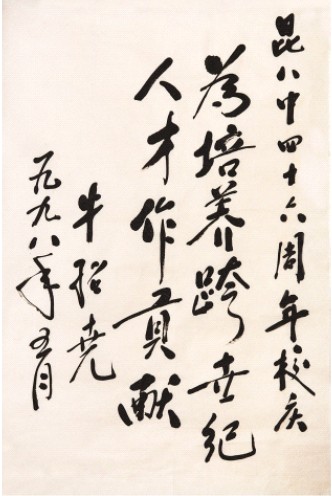 昆八中四十六周年校庆
为培养跨世纪
人才作貢献
牛绍尧
一九九八年五月